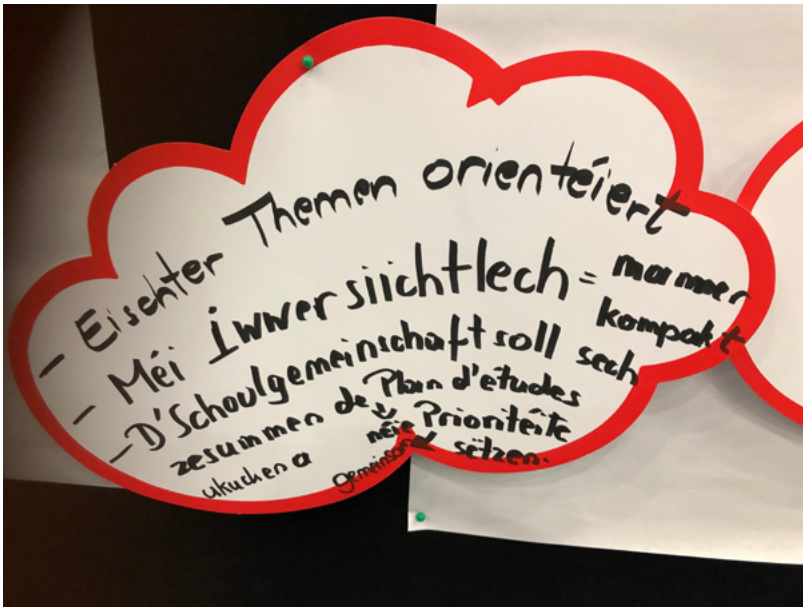 - Eischter Themen orientéiert
- Méi iwwersiichtlech = manner
kompakt
- D'Schoulgemeinschaft soll sech
zesummen de Plan d'études
ukucken a néie Prioritéite
gemeinsam sëtzen.